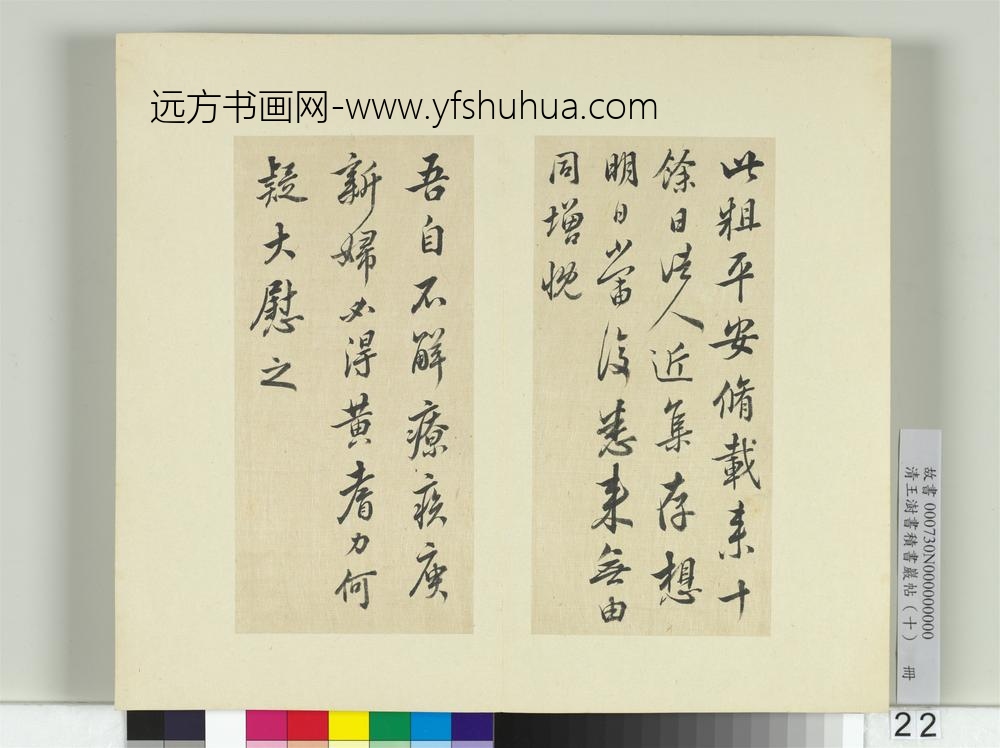 远方书画网-www.yfshuhua.com
此粗平安脩載来十
餘日诸人近集存想
明日當復悉来無由
同增慨
吾自不解療疾庾
新婦必得黄耆力何
疑大慰之
故書 000730N000000000
清王澍書積書巖帖（十） 冊
22